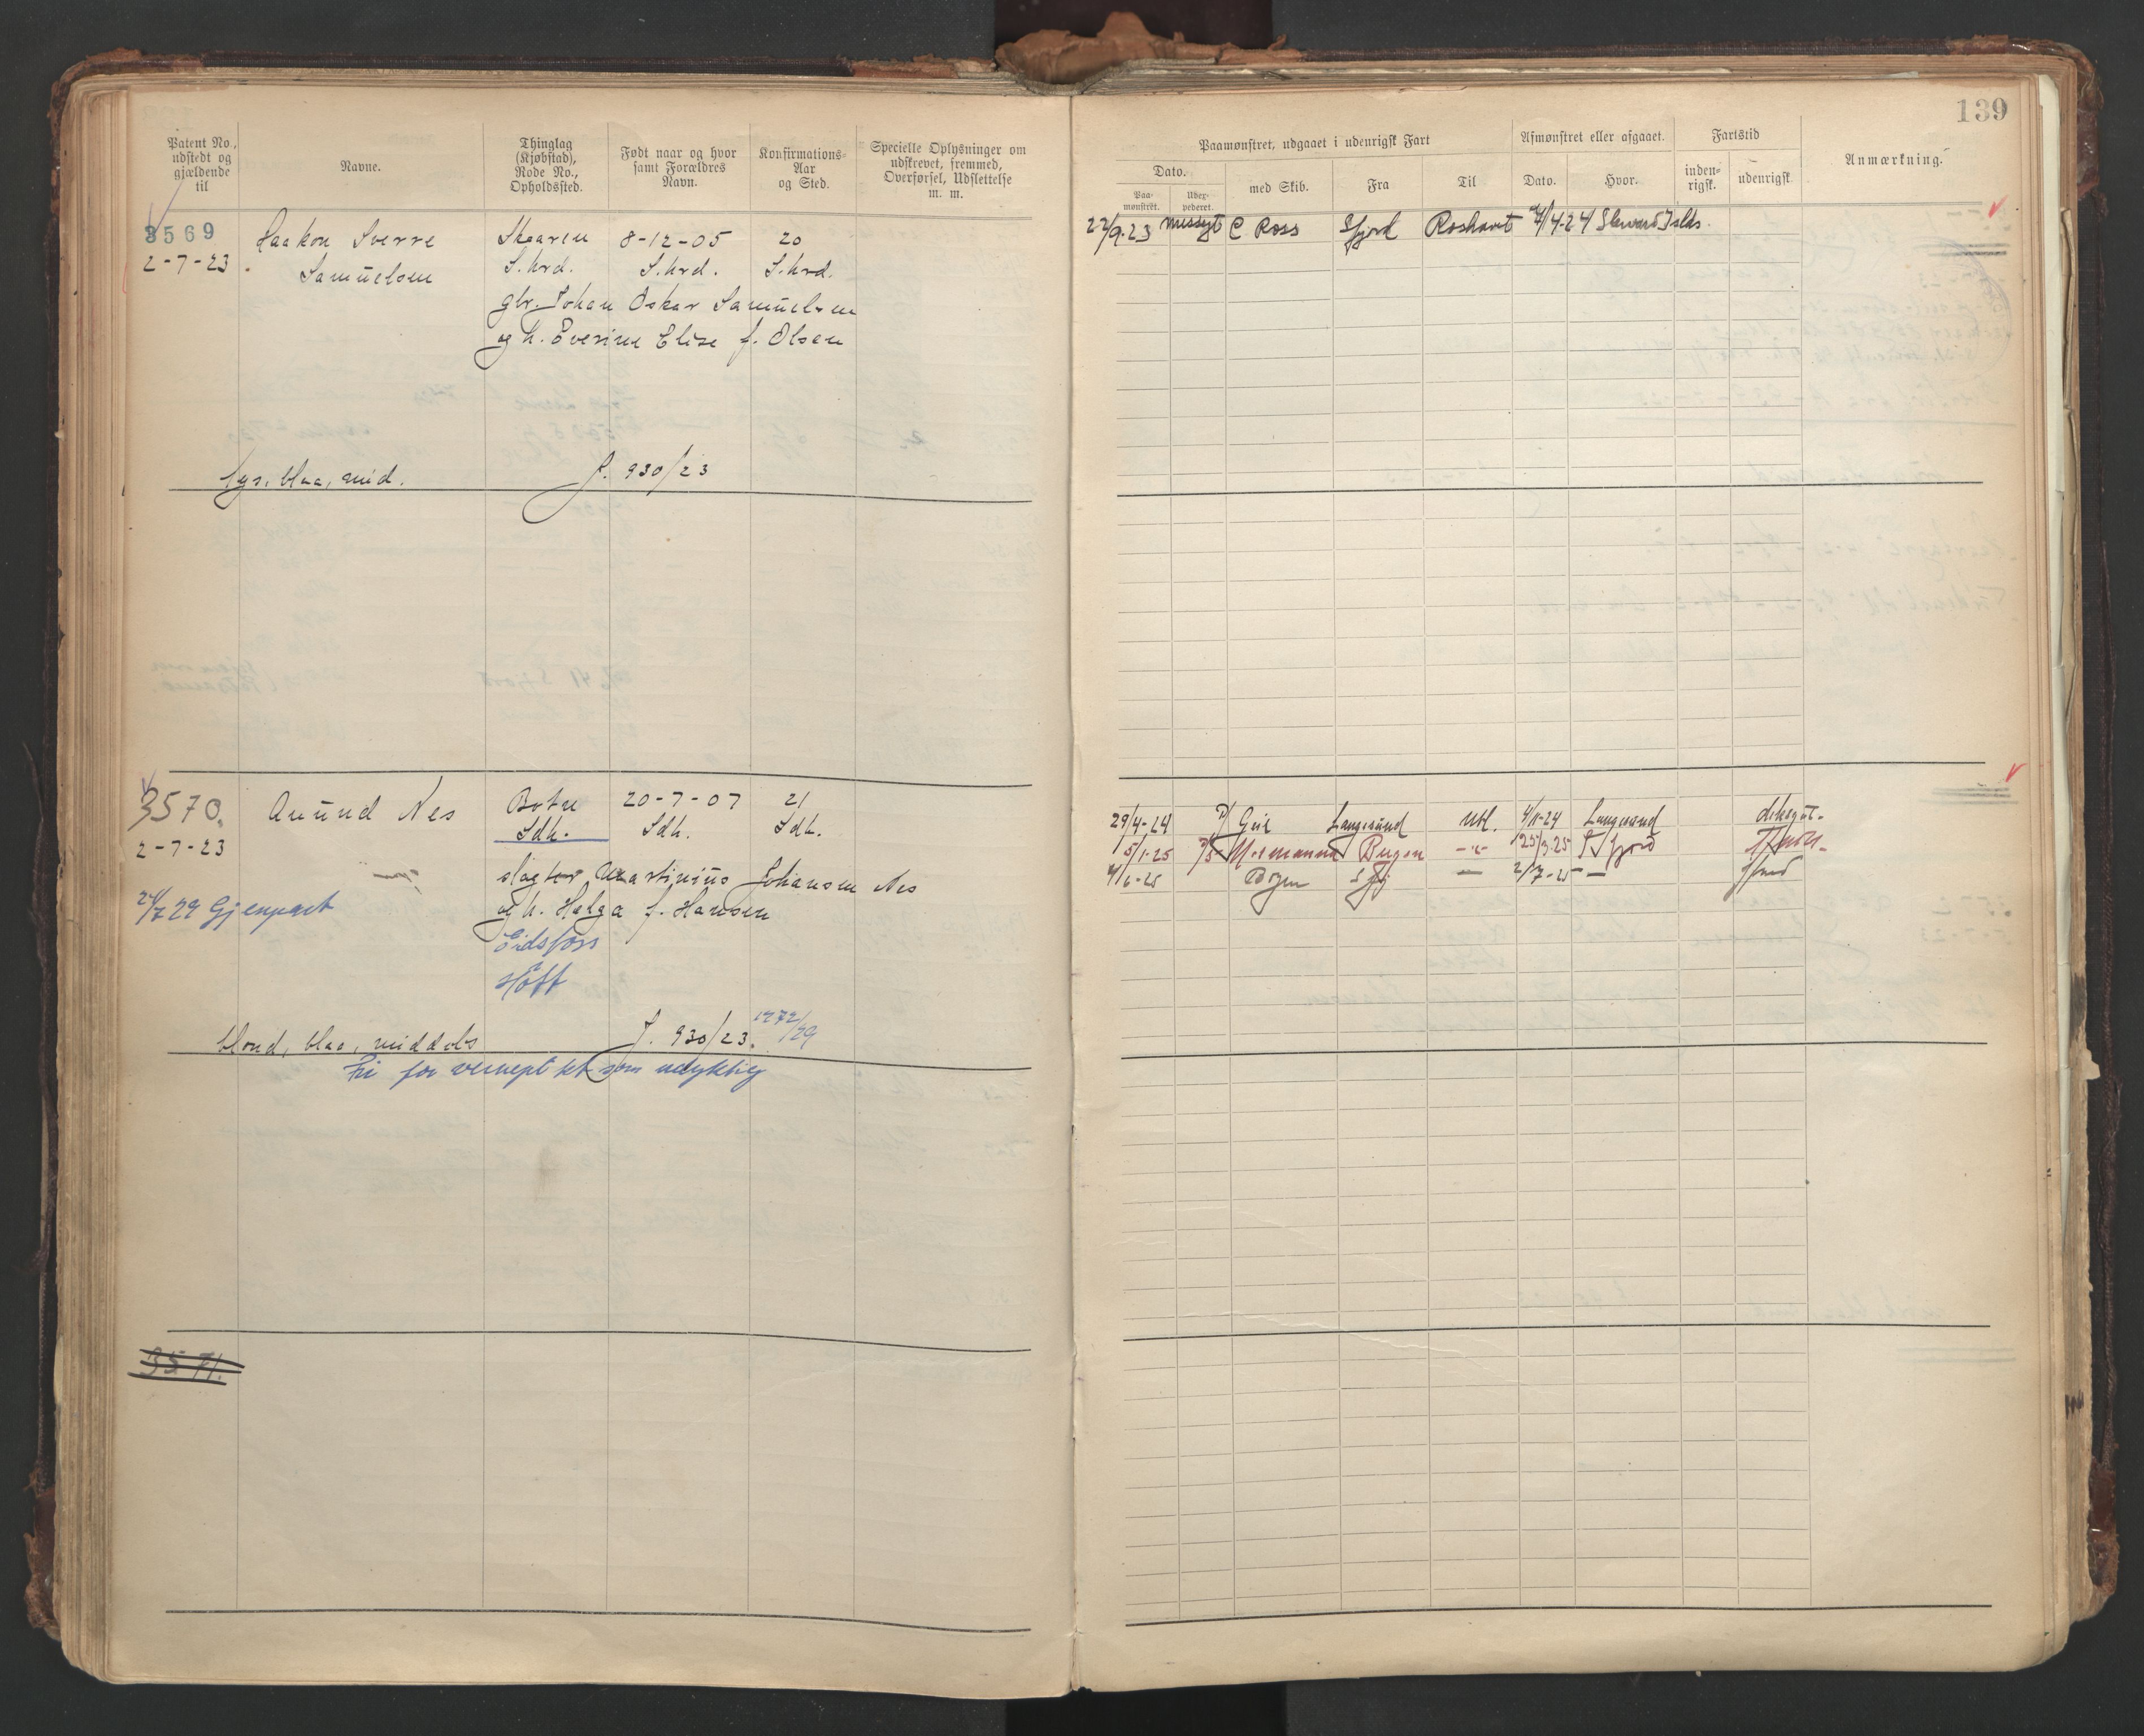 139
Patent No., udstedt og gjældende til
Navne.
Thinglag (Kjøbstad), Rode No., Opholdssted.
Født naar og hvor samt Forældres Navn.
Konfirmations-Aar og Sted.
Specielle Oplysninger om udskrevet, fremmed, Overførsel, Udslettelse m. m.
Paamønstret, udgaaet i udenrigsk Fart
Afmønstret eller afgaaet.
Fartstid
Anmærkning.
Dato.
med Skib.
Fra
Til
Dato.
Hvor.
inden-rigsk.
udenrigsk
Paa-mønstret.
3569 Haakon Sverre Skaaren 8-12-05 20
2-7-23 Samuelsen S.hrd. S.hrd. S.hrd.
gbr. Johan Oskar Samuelsen
og h. Everine Elise f. Olsen
lys, blaa, mid. J. 930/23
22/9-23 C Ross Sfjord Rosshavet
3570. Amund Nes Botne 20-7-07 21
2-7-23 Sdh. Sdh. Sdh.
slagter Martinius Johansen Nes
24/7 29 Gjenpart og h. Helga f. Hansen
Eidsfoss
Hof
blond, blaa, middels J. 930/23. 1272/29
Fri for vernepl
29/4-24 Geir Langesund Utl. 4/11-24 Langesund
5/1-25 Bergen 25/3-25 Sfjord
4/6-25 2/7-25
3571.